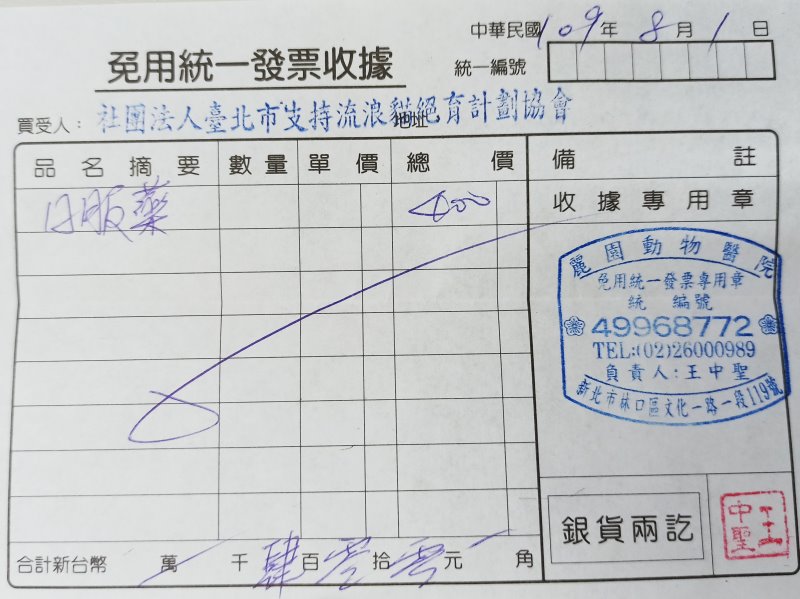 中華民國109年8月1日
免用統一發票收據
統一編號
買受人：社團法人臺北市支持流浪貓絕育計劃協會
地址
品名摘要 數量 單價 總價 備註
口服藥 400
收據專用章
麗園動物醫院
免用統一發票專用章
統編號
49968772
TEL:(02)26000989
負責人:王中聖
新北市林口區文化一路一段119號
銀貨兩訖
王中聖
合計新台幣 萬 千肆百零拾零元 角